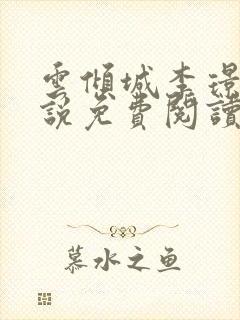 雲傾城李璟
說免費閱讀
慕水之鱼